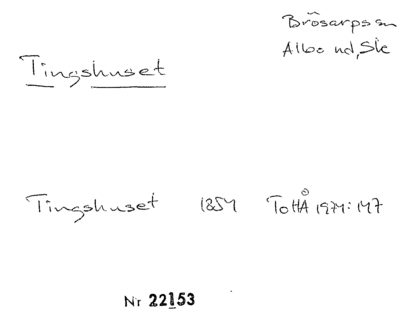 Brösarps sn
Albo hd, Sk
Tingshuset
Tingshuset 1854 ToHÅ 1974:147
Nr 22153